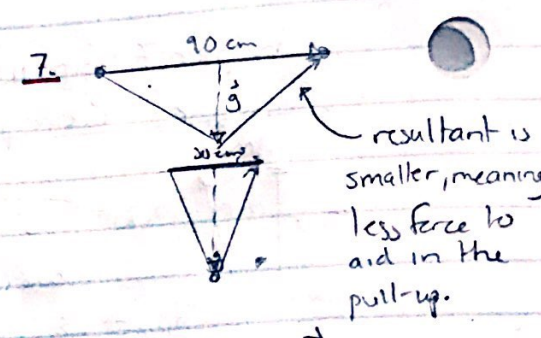 90 cm
7.
g
resultant is
smaller, meaning
less force to
aid in the
pull-up.